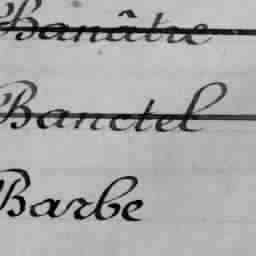 Banâtre
Banctel
Barbe